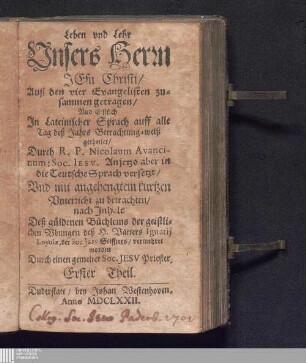 Leben vnd Lehr
Vnsers Herrn
JEsu Christi/
Auß den vier Evangelisten zu-
sammen getragen/
Vnd Erstlich
In Lateinischer Sprach auff alle
Tag deß Jahrs Betrachtung-weiß
getheilet/
Durch R. P. Nicolaum Avanci-
num: Soc. IESV. Anjetzo aber in
die Teutsche Sprach versetzt/
Vnd mit angehengtem kurtzen
Vnterricht zu betrachten/
nach Inhalt
Deß güldenen Büchleins der geistli-
chen Vbungen deß H. Vatters Ignatij
Loyolæ, der Soc. Jesv Stiffters/ vermehret
worden
Durch einen gemelter Soc. JESV Priester,
Erster Theil.
Duderstatt/ bey Johan Westenhoven,
Anno MDCLXXII.
Colleg. Soc. Iesu Paderb. 1701